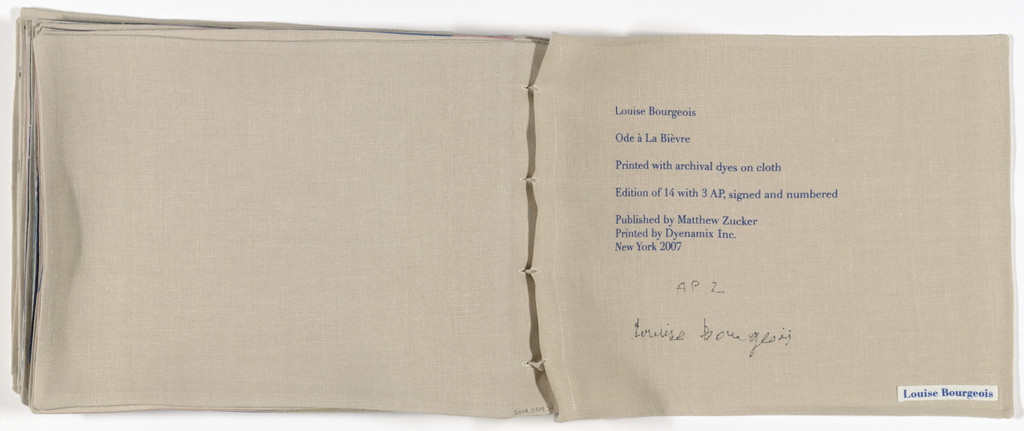 Louise Bourgeois
Ode à La Bièvre
Printed with archival dyes on cloth
Edition of 14 with 3 AP, signed and numbered
Published by Matthew Zucker
Printed by Dyenamix Inc.
New York 2007
AP 2
Louise Bourgeois
Louise Bourgeois